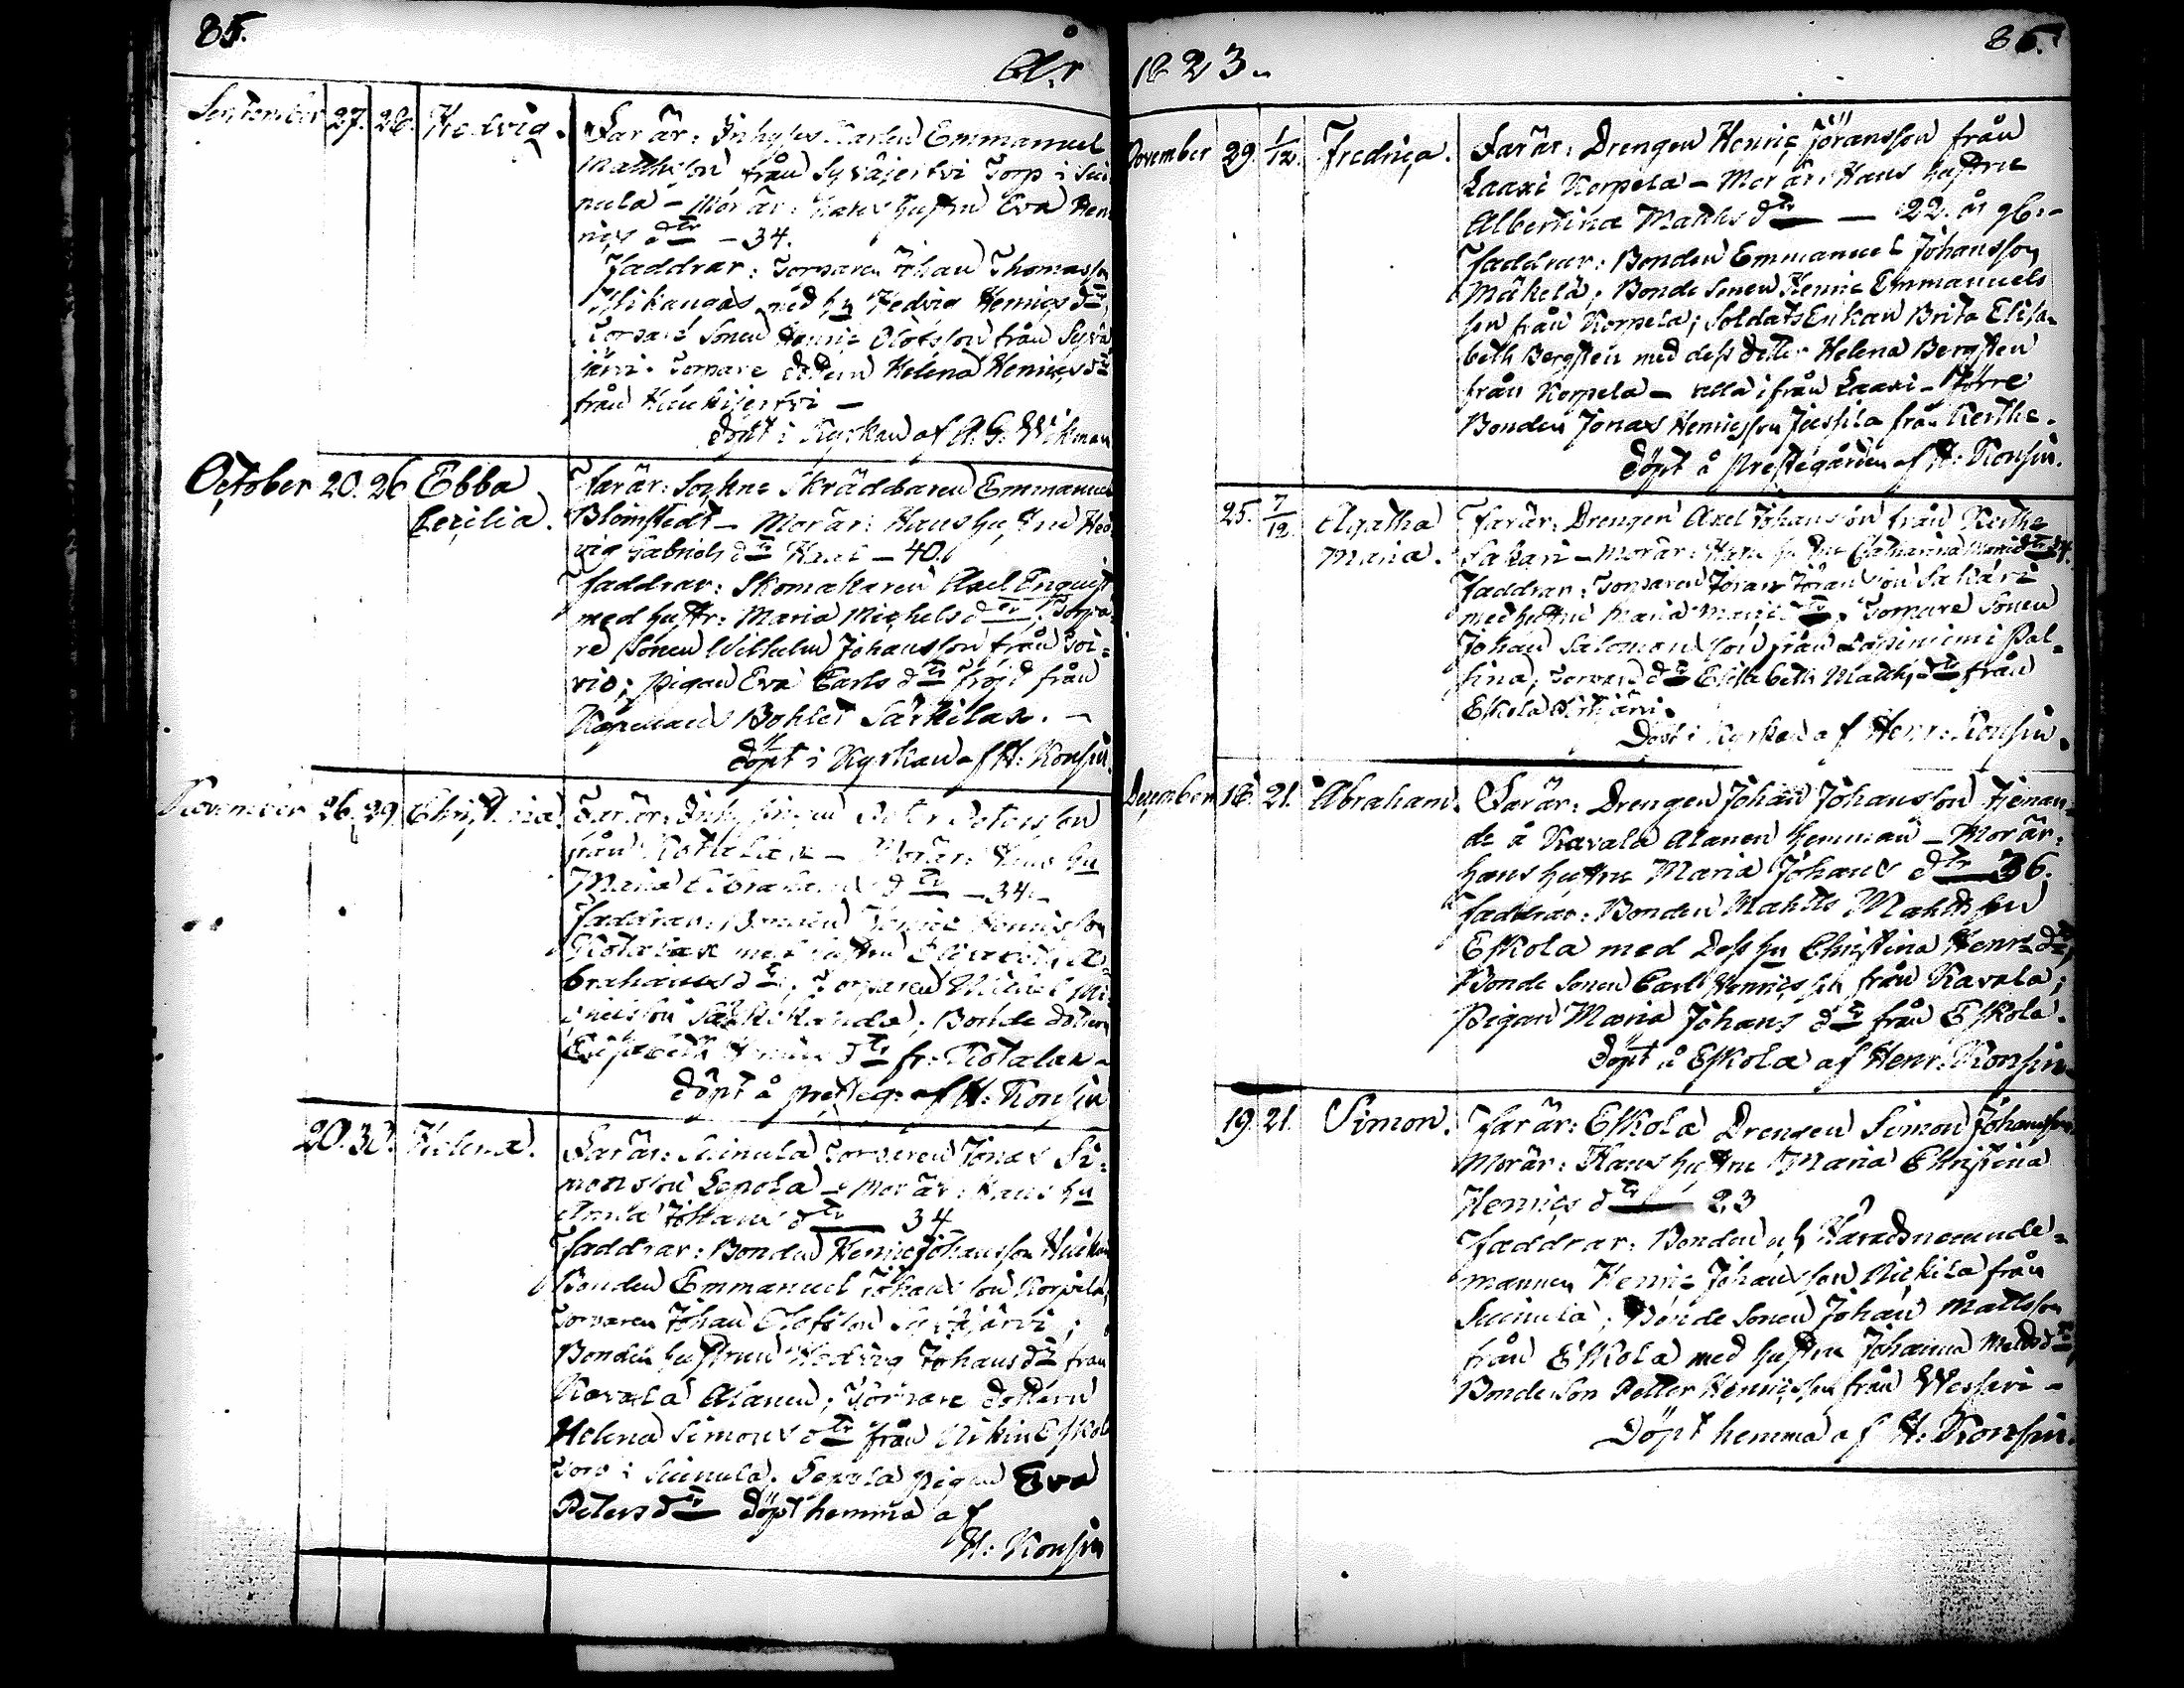 85.
År
September 27. 28. Hedvig. Far är: Inhyses Karlen Emmanuel
Matthsson från Syväjerfvi Torp i Sui
nula – Mor är: Hans hustru Eva Hen
rics dtr – 34.
Faddrar: Torparen Johan Thomasson
med hu Hedvig Henricsdtr,
Torpare Sonen Henric Olofsson från Syvä
järvi. Torpare dottern Helena Henricsdtr
från Haukijerfvi –
döpt i Kyrkan af A. G. Wikman
October 20. 26 Ebba
Cecilia.
Far är: Sockne Skräddaren Emmanuel
Blomstedt – Mor är: Hans hustru Hed
vig Gabriels dtr – 40.
Faddrar: Skomakaren Axel Enquist
med hustr: Maria Michels dtr; Torpa
re Sonen Wilhelm Johansson från Toi=
vio; pigan Eva Carls dtr Fröjd från
Kapellans Bohlet Särkilax. –
döpt i Kyrkan af H: Konsin.
November 26. 29. Christina. Far är: Petersson
från Kotalax – Mor är: Hans hu
Maria Abrahams dtr – 34. –
Faddrar: Bonden Henric Henricsson
Kotalax med hustru A=
brahamsdtr; Torparen Michel Mi
chelsson; Bonde dottren
Elisabeth Henrics dtr fr: Kotalax –
döpt å presteg: af H: Konsin
20. 30. Helena. Far är: Suinula Torparen Jonas Si=
monsson Lepola – Mor är: Hans hu
Anna Johans dtr 34
Faddrar: Bonden Henric Johansson
Bonden Emmanuel Johansson Korpela,
Torparen Johan Olofsson Syväjärvi;
Bonden hustrun Hedvig Johansdtr från
Kavala Alanen; Torpare dottern
Helena Simons dtr från
Torp i Suinula. Lepola pigan Eva
Peters dtr döpt hemma af
H: Konsin
86.
1823.
November 29. 1/12. Fredrica. Far är: Drengen Henric Jöransson från
Laaxi Korpela – Mor är: Hans hustru
Albertina Matths dtr — 22. år gl: –
Faddrar: Bonden Emmanuel Johansson
Mäkelä; Bonde Sonen Henric Emmanuels
son från Korpela; Soldats Enkan Brita Elisa=
beth Bergsten med dess dotter Helena Bergsten
från Korpela – alla ifrån Laaxi – Förre
Bonden Jonas Henricsson från Kerthe.
döpt å prestegården af H: Konsin.
25. 7/12. Agatha
Maria.
Far är: Drengen Axel Johansson från Kerthe
Sakari – Mor är: Hans hustru Catharina
Faddrar: Torparen Jöran Jöransson Sakari
med hustru Maria; Torpare Sonen
Johan Salomonsson från Lapinniemi Pal=
sina; Torpare dtr Elisabeth Matths dtr från
Eskola
Döpt i Kyrkan af Henr: Konsin.
December 18. 21. Abraham. Far är: Drengen Johan Johansson tjenan=
de å Kavala Alanen hemman – Mor är:
hans hustru Maria Johans dtr 36.
Faddrar: Bonden Matths Matthsson
Eskola med dess hu Christina Henrsdtr,
Bonde Sonen Carl Henricsson från Kavala;
Pigan Maria Johans dtr från Eskola.
döpt å Eskola af Henr: Konsin
19. 21. Simon. Far är: Eskola Drengen Simon Johansson
Mor är: Hans hustru Maria Christina
Henrics dtr 23
Faddrar: Bonden och Häradsnemnde=
mannen Henric Johansson från
Suinula; Bonde Sonen Johan Mattsson
från Eskola med hustru Johanna Mattsdtr,
Bonde Son Petter Henricsson från Wessari –
Döpt hemma af H: Konsin.